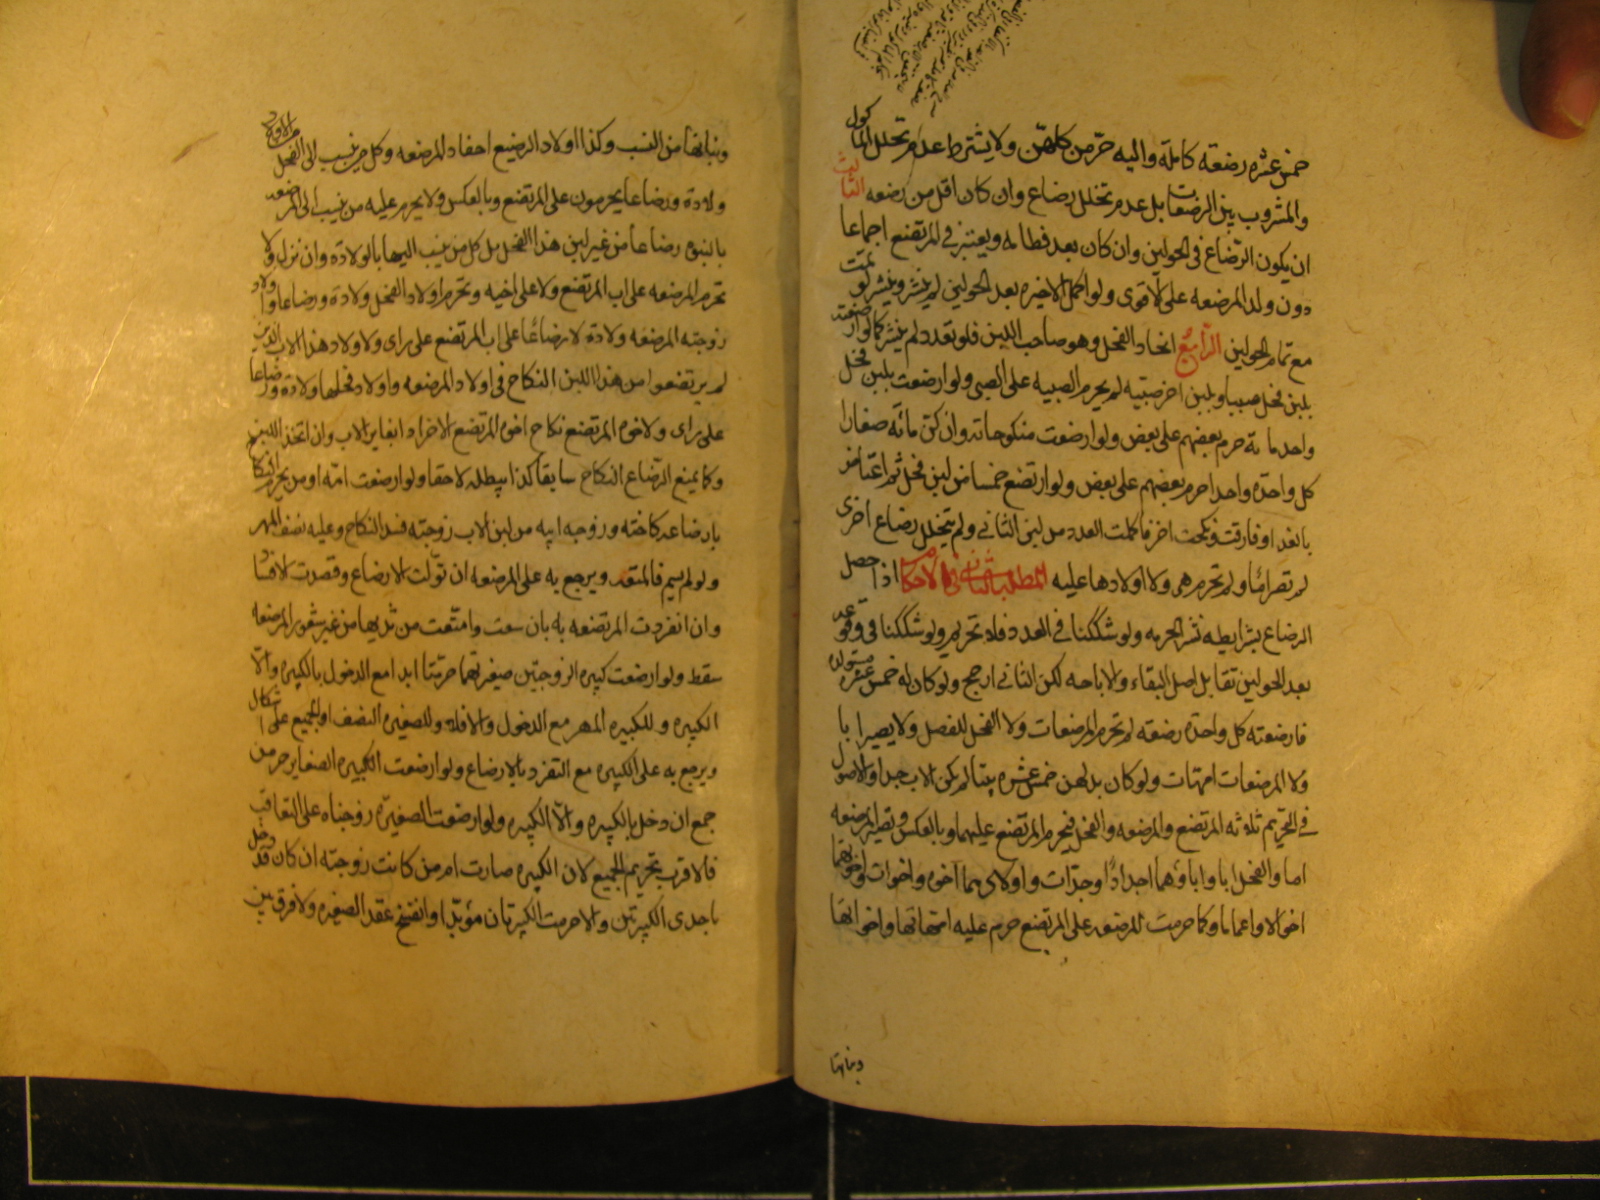 خمس عشره رضعة كاملة واليه حرّ من كلهنّ ولا يشترط عدم تخلل المأكول
والمشروب بين الرضعات بل عدم تخلل رضاع وان كان اقل من رضعه الثالث
ان يكون الرّضاع فى الحولين وان كان بعد فطامه ويعتبر فى المرتضع اجماعا
دون ولد المرضعه على الأقوى ولو اكمل الاخيره بعد الحولين لم ينشر وينشر لو تمت
مع تمام الحولين الرّابع اتحاد الفحل وهو صاحب اللبن فلو تعدد لم ينشر كما لو ارضعت
بلبن فحل صبيا وبلبن اخر صبيّه لم يحرم الصبيه على الصبى ولو ارضعت بلبن فحل
واحد مائة حرم بعضهم على بعض ولو ارضعت منكوحاته وان كن مائه صغارا
كل واحدة واحدا حرم بعضهم على بعض ولو ارتضع خمسا من لبن فحل ثم اعتاض
بالغداء او فارقت ونكحت اخر فاكملت العدد من لبن الثانى ولم يتخلل رضاع اخرى
لم تصر امّا ولم تحرم هى ولا اولادها عليه المطلب الثانى فى الاحكام اذا حصل
الرضاع بشرايطه نشر الحرمه ولو شككنا فى العدد فلا تحريم ولو شككنا فى وقوعه
بعد الحولين تقابل اصل البقاء والاباحه لكن الثانى ارجح ولو كان له خمس عشره مستولده
فارضعته كل واحدة رضعة لم تحرم المرضعات ولا الفحل للفصل ولا يصير ابا
ولا المرضعات امهات ولو كان بدلهن خمس عشره بنتا لم يكن الاب جدا والاصول
فى التحريم ثلاثه المرتضع والمرضعه والفحل فيحرم المرتضع عليهما وبالعكس وتصير المرضعه
اما والفحل ابا واباؤهما اجدادًا وجدّات واولادهما اخوه واخوات واخوتهما
اخوالا واعماما وكما حرمت المرضعه على المرتضع حرم عليه امهاتها واخواتها
وبناتها
وبناتها من النسب وكذا اولاد الرضيع احفاد المرضعه وكل من ينسب الى الفحل من الاولاد
ولادة ورضاعا يحرمون على المرتضع وبالعكس ولا يحرم عليه من ينسب الى المرضعه
بالبنوة رضاعا من غير لبن هذا الفحل بل كل من ينسب اليها بالولادة وان نزل ولا
تحرم المرضعه على اب المرتضع ولا على اخيه وتحرم اولاد الفحل ولادة ورضاعا واولاد
زوجته المرضعه ولادة لا رضاعًا على اب المرتضع على راى ولاولاد هذا الاب الذين
لم يرتضعوا من هذا اللبن النكاح فى اولاد المرضعه واولاد فحلها ولادة ورضاعا
على راى ولاخوة المرتضع نكاح اخوه المرتضع الاخر اذا تغاير الاب وان اتحد اللبن
وكما يمنع الرّضاع النكاح سابقا كذا يبطله لاحقا ولو ارضعت امّه او من يحرم النكاح
بارضاعه كاخته وزوجه ابيه من لبن الاب زوجته فسد النكاح وعليه نصف المهر
ولو لم يسم فالمتعه ويرجع به على المرضعه ان تولّت الارضاع وقصدت الافساد
وان انفردت المرتضعه به بان سعت وامتصّت من ثديها من غير شعور المرضعه
سقط ولو ارضعت كبيره الزوجتين صغيرتهما حرمتا ابدا مع الدخول بالكبيره والّا
الكبيره وللكبيره المهر مع الدخول والا فلا وللصغيره النصف او الجميع على اشكال
ويرجع به على الكبيره مع التفرد بالارضاع ولو ارضعت الكبيره الصغاير حرمن
جمع ان دخل بالكبيره والّا الكبيره ولو ارضعت الصغيرّه زوجتاه على التعاقب
فالاقرب تحريم الجميع لان الكبيره صارت ام من كانت زوجته ان كان قد دخل
باحدى الكبيرتين والا حرمت الكبيرتان مؤبدا وانفسخ عقد الصغيره ولا فرق بين